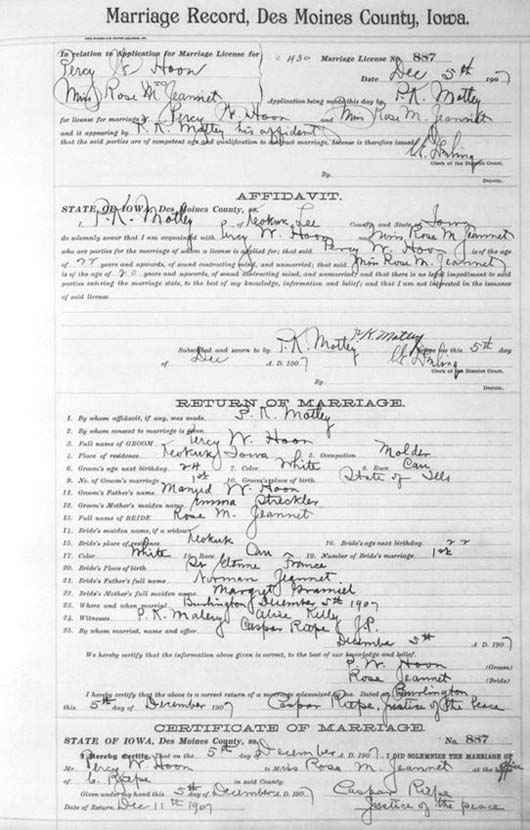 Marriage Record, Des Moines County, Iowa.
In relation to Application for Marriage License for
Percy W Hoon
TO
Miss Rose M Jeannet
0430 Marriage License No. 887
Date Dec 5th 1907
Application being made this day by P. K. Motley
for license for marriage of Percy W. Hoon and Miss Rose M. Jeannet
and it appearing by P. K. Motley his affidavit
that the said parties are of competent age and qualification to contract marriage, license is therefore issued.
Clerk of the District Court.
By
Deputy.
AFFIDAVIT.
STATE OF IOWA, Des Moines County, ss.
I, P. K. Motley of Keokuk Lee County and State of Iowa
do solemnly swear that I am acquainted with Percy W. Hoon and Miss Rose M Jeannet
who are parties for the marriage of whom a license is applied for; that said Percy W. Hoon is of the age
of 22 years and upwards, of sound contracting mind, and unmarried; that said Miss Rose M. Jeannet
is of the age of 20 years and upwards, of sound contracting mind, and unmarried; and that there is no legal impediment to said
parties entering the marriage state, to the best of my knowledge, information and belief; and that I am not interested in the issuance
of said license.
P. K. Motley
Subscribed and sworn to by P. K. Motley before me this 5th day
of Dec A. D. 1907
Clerk of the District Court.
By
Deputy.
RETURN OF MARRIAGE.
1. By whom affidavit, if any, was made. P. K. Motley
2. By whom consent to marriage is given.
3. Full name of GROOM Percy W. Hoon
4. Place of residence. Keokuk Iowa 5. Occupation Molder
6. Groom's age next birthday. 24 7. Color White 8. Race Cau
9. No. of Groom's marriage 1st 10. Groom's place of birth State of Ills
11. Groom's Father's name W. Hoon
12. Groom's Mother's maiden name Emma Strickler
13. Full name of BRIDE Rose M. Jeannet
14. Bride's maiden name, if a widow
15. Bride's place of residence. Keokuk 16. Bride's age next birthday. 22
17. Color White 18. Race Cau 19. Number of Bride's marriage. 1st
20. Bride's Place of birth France
21. Bride's Father's full name Norman Jeannet
22. Bride's Mother's full maiden name Margret
23. Where and when married Burlington December 5th 1907
24. Witnesses P. K. Alice Kelly
25. By whom married, name and office. Caspar J.P.
December 5th A. D. 1907
We hereby certify that the information above given is correct, to the best of our knowledge and belief.
P. W. Hoon (Groom)
Rose Jeannet (Bride)
I hereby certify that the above is a correct return of a marriage solemnized by me. Dated at Burlington
this 5th day of December 1907 Caspar Justice of the Peace
CERTIFICATE OF MARRIAGE
STATE OF IOWA, Des Moines County, ss. No. 887
I Hereby Certify, That on the 5th day of December A.D. 1907, I DID SOLEMNIZE THE MARRIAGE OF
Mr Percy W. Hoon to Miss Rose M. Jeannet at the office
of C. in said County.
Given under my hand this 5th day of December A.D. 1907 Caspar
Date of Return, Dec 11th 1907 Justice of the peace